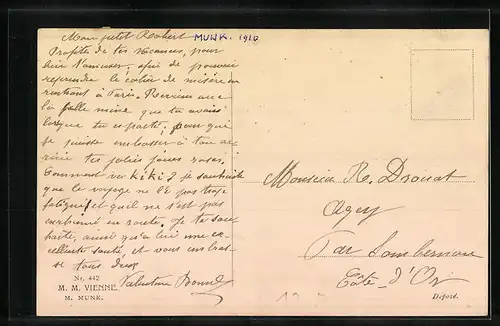 Mon petit Robert MUNK. 1910
Profite de tes vacances, pour
bien t'amuser, afin de pouvoir
reprendre le collier de misère en
rentrant à Paris. Reviens avec
la belle mine que tu avais
lorsque tu es parti, pour que
je puisse embrasser à ton ar-
rivée tes jolies joues roses.
Comment va Kiki? je souhaite
que le voyage ne l'a pas trop
fatigué et qu'il ne s'est pas
en route. Je te sou-
haite, ainsi qu'à lui une ex-
cellente santé et vous embras-
se tous deux
Valentine
Nr. 442
M. M. VIENNE
M. MUNK.
Monsieur R. Drouot
Agey
Par Sombernon
Côte d'Or
Déposé.